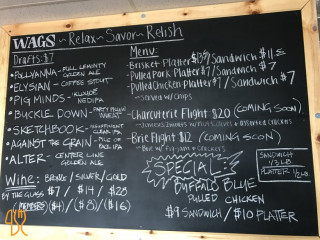 WAGS ~ Relax ~ Savor ~ Relish
Drafts: $7
• POLLYANNA - FULL LEMONTY GOLDEN ALE
• ELYSIAN - COFFEE STOUT
• PIG MINDS - NEDIPA
• BUCKLE DOWN - PARTY WHEAT
• SKETCHBOOK - CLEAR PA
• AGAINST THE GRAIN - PALE ALE
• ALTER - CENTER LINE GOLDEN ALE
Wine: BRONZE / SILVER / GOLD
BY THE GLASS $7 / $14 / $28
(MEMBERS) ($4) / ($8) / ($16)
Menu:
- Brisket Platter Sandwich
- Pulled Pork Platter $7 / Sandwich $7
- Pulled Chicken Platter $7 / Sandwich $7
~ Served w/ chips
- Charcuterie Flight $20 (COMING SOON)
assorted crackers
- Brie Flight $12 (coming SOON)
- Brie w/ Fig Jam & crackers
SPECIAL:
BUFFALO BLUE
PULLED CHICKEN
$9 SANDWICH / $10 PLATTER
SANDWICH
1/3 LB
PLATTER 1/2 LB